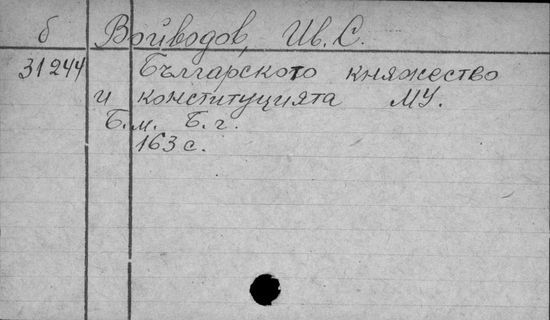 б Войводов, Ив. С.
31244 Българското княжество
и конституцията МУ.
Б.м. Б.г.
163 с.